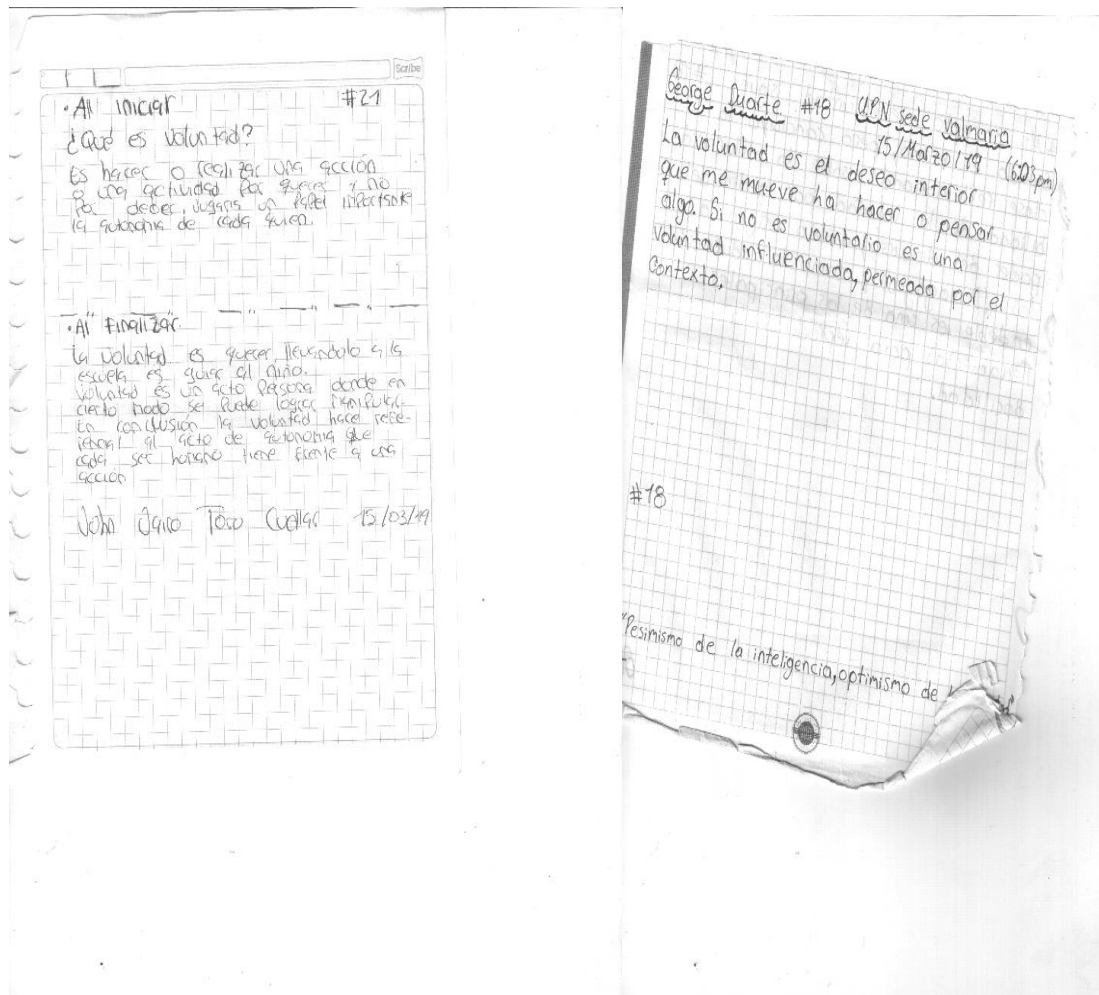 Scribe
· Al iniciar #21
¿Qué es voluntad?
Es hacer o realizar una acción
o una actividad por querer y no
por deber, jugaria un papel importante
la autonomia de cada quien.
· Al Finalizar.
La voluntad es querer, llevandolo a la
escuela es guiar al niño.
voluntad es un acto persona donde en
cierto modo se puede lograr manipular.
En conclusión la voluntad hace refe-
al acto de autonomia que
cada ser humano tiene frente a una
acción
John Jairo Toso Cuellar 15/03/19
George Duarte #18 UPN sede valmaria
15/Marzo/19 (6:03pm)
La voluntad es el deseo interior
que me mueve ha hacer o pensar
algo. Si no es voluntario es una
voluntad influenciada, permeada por el
contexto.
#18
"Pesimismo de la inteligencia, optimismo de